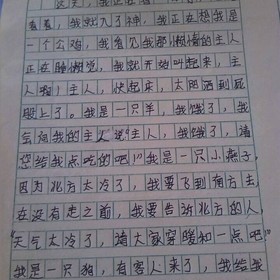 这天，我正在
看着，我就入了神，我正在想我是
一个公鸡，我看见我那懒惰的主人
正在睡懒觉，我就开始叫起来，主
人啊！主人，快起来，太阳洒到屁
股上了。我是一只羊，我饿了，我
会向我的主人说"主人，我饿了，请
您给我点吃的吧！"我是一只小燕子，
因为北方太冷了，我要飞到南方去，
在没有走之前，我要告诉北方的人，
"天气太冷了，请大家穿暖和一点吧"
我是一只狗，有客人来了，我给我